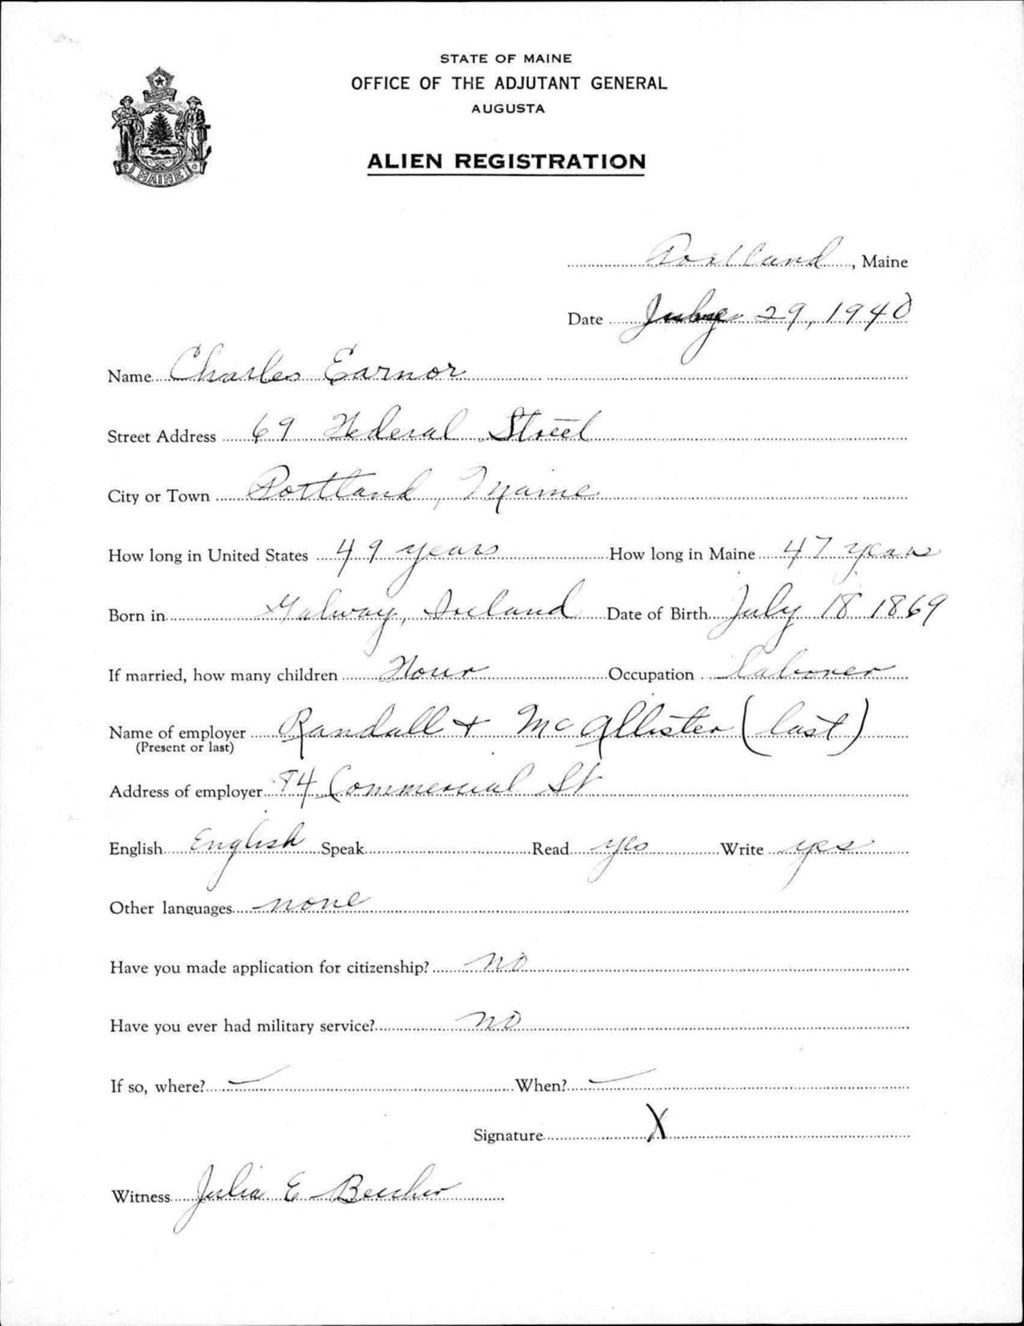 STATE OF MAINE
OFFICE OF THE ADJUTANT GENERAL
AUGUSTA
MAINE
ALIEN REGISTRATION
Portland, Maine
Date July 29, 1940
Name Charles Earnor
Street Address 69 Federal Street
City or Town Portland, Maine
How long in United States 49 years How long in Maine 47 years
Born in Galway, Ireland Date of Birth July 18 1869
If married, how many children Occupation Laborer
Name of employer Randall + McAllister (last)
(Present or last)
Address of employer 84 Commercial St
English English Speak Read yes Write yes
Other languages none
Have you made application for citizenship? no
Have you ever had military service? no
If so, where? — When? —
Signature X
Witness Julia E Beecher